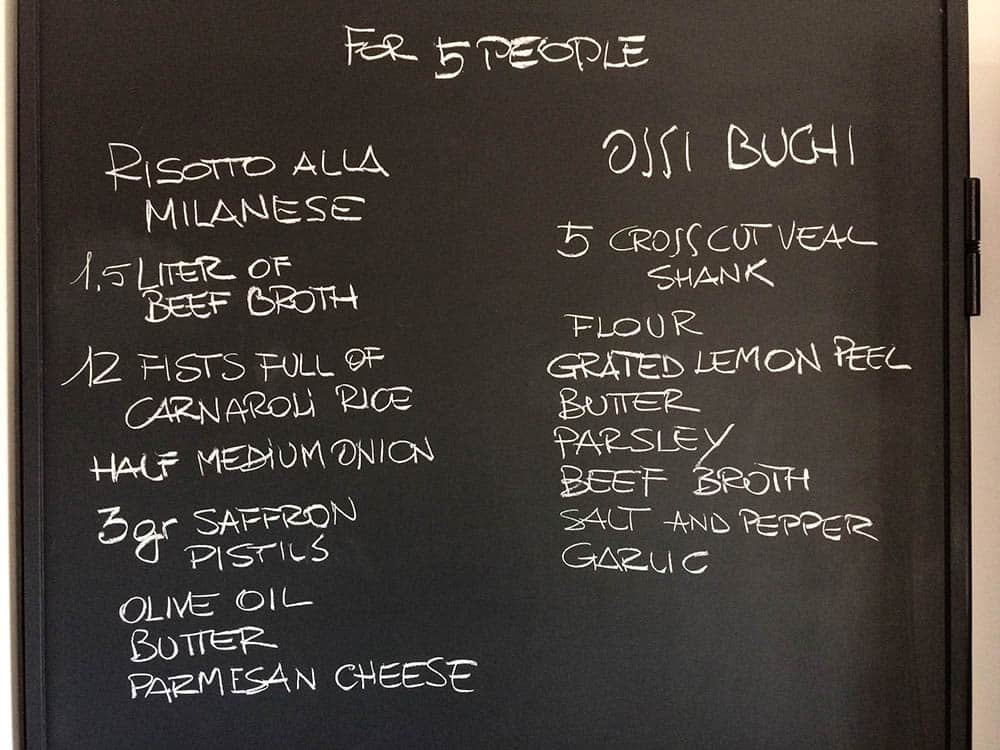 FOR 5 PEOPLE
RISOTTO ALLA
MILANESE
1,5 LITER OF
BEEF BROTH
12 FISTS FULL OF
CARNAROLI RICE
HALF MEDIUM ONION
3gr SAFFRON
PISTILS
OLIVE OIL
BUTTER
PARMESAN CHEESE
OSSI BUCHI
5 CROSS CUT VEAL
SHANK
FLOUR
GRATED LEMON PEEL
BUTTER
PARSLEY
BEEF BROTH
SALT AND PEPPER
GARLIC